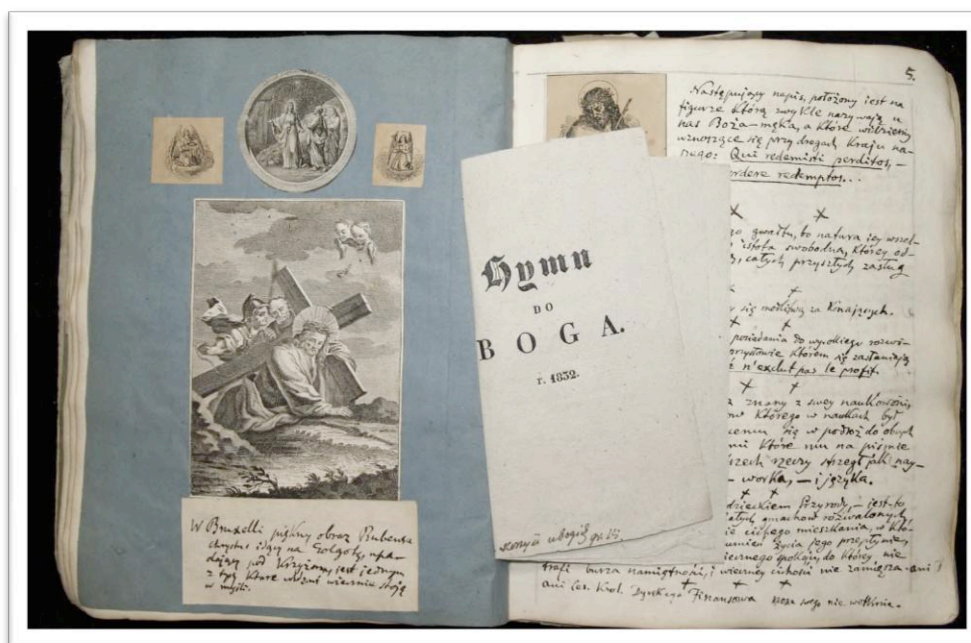 W Bruxelli piękny obraz Rubensa
Chrystus idący na Golgotę, upa-
dający pod Krzyżem, jest jednym
z tych które wciąż wiernie stoją
w myśli.
Hymn
DO
BOGA.
r. 1832.
5.
Następujący napis, położony jest na
figurze którą zwykle nazywają u
nas Boża-męka, a które widziemy
wznoszące się przy drogach Kraju na-
szego: Qui redemisti perditos, –
perdere redemptos...
gwałtu, bo natura jey
istota swobodna, którey od-
całych przyszłych zasług
się modlitwy za Konających.
posiadania do wysokiego
Którem się zasłaniają
n'exclut pas le profit.
znany z swey naukowości,
Którego w naukach był
się w podróż do obcych
Które mu na piśmie
rzeczy strzegł jak nay-
worka, – i języka.
dzieckiem Przyrody, – jest-to
gmachów rozwalonych
cichego mieszkania, w któ-
życia jego przepływa,
spokoju, do którey nie
trafi burza namiętności, i wierney cichości nie zamięsza – ani
ani Ces. Krol. Finansowa swego nie wetknie.